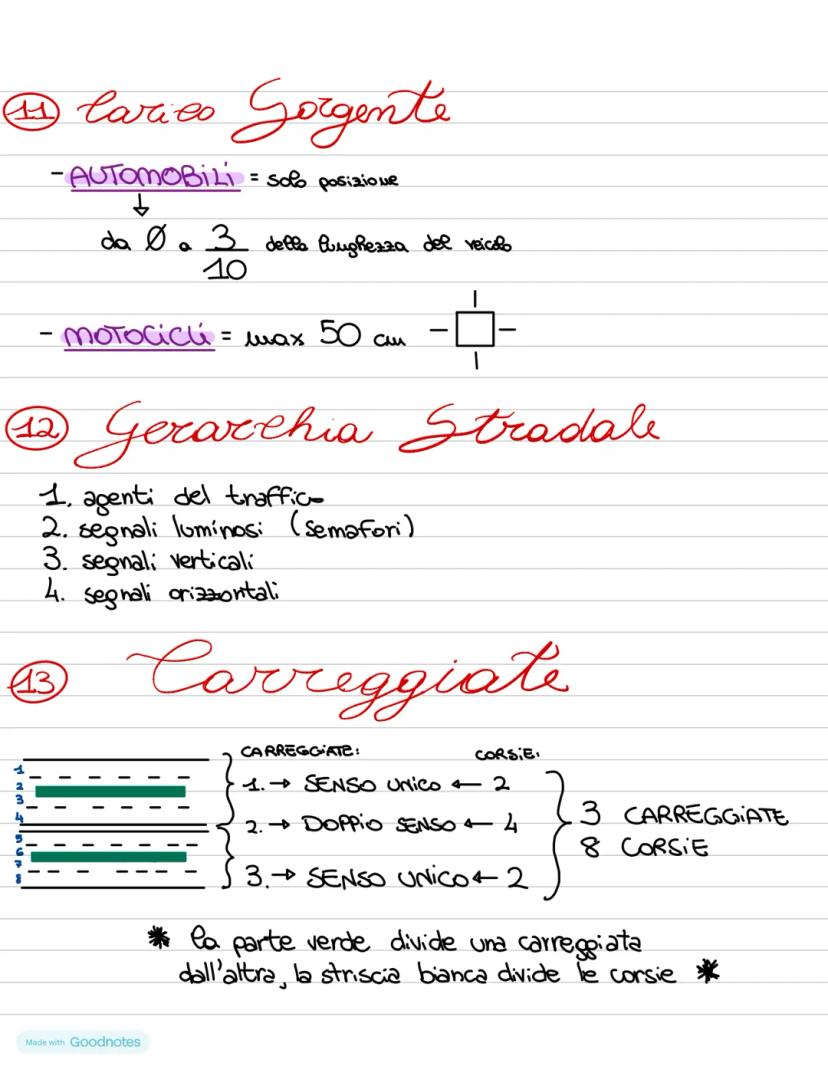 11 Carico Sorgente
- AUTOMOBILI = solo posizione
↓
da Ø a 3/10 della lunghezza del veicolo
- MOTOCICLI = max 50 cm
12 Gerarchia Stradale
1. agenti del traffico
2. segnali luminosi (semafori)
3. segnali verticali
4. segnali orizzontali
13 Carreggiate
CARREGGIATE: CORSIE:
1
2
3
4
5
6
7
8
1. → SENSO UNICO ← 2
2. → DOPPIO SENSO ← 4
3. → SENSO UNICO ← 2
3 CARREGGIATE
8 CORSIE
* la parte verde divide una carreggiata
dall'altra, la striscia bianca divide le corsie *
Made with Goodnotes